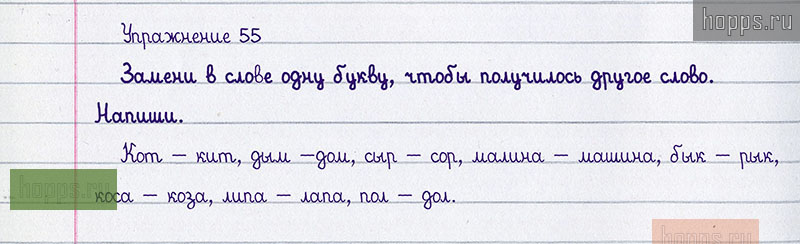 hopps.ru
Упражнение 55
Замени в слове одну букву, чтобы получилось другое слово.
Напиши.
Кот – кит, дым –дом, сыр – сор, малина – машина, бык – рык,
коса – коза, липа – лапа, пол – дол.
hopps.ru
hopps.ru